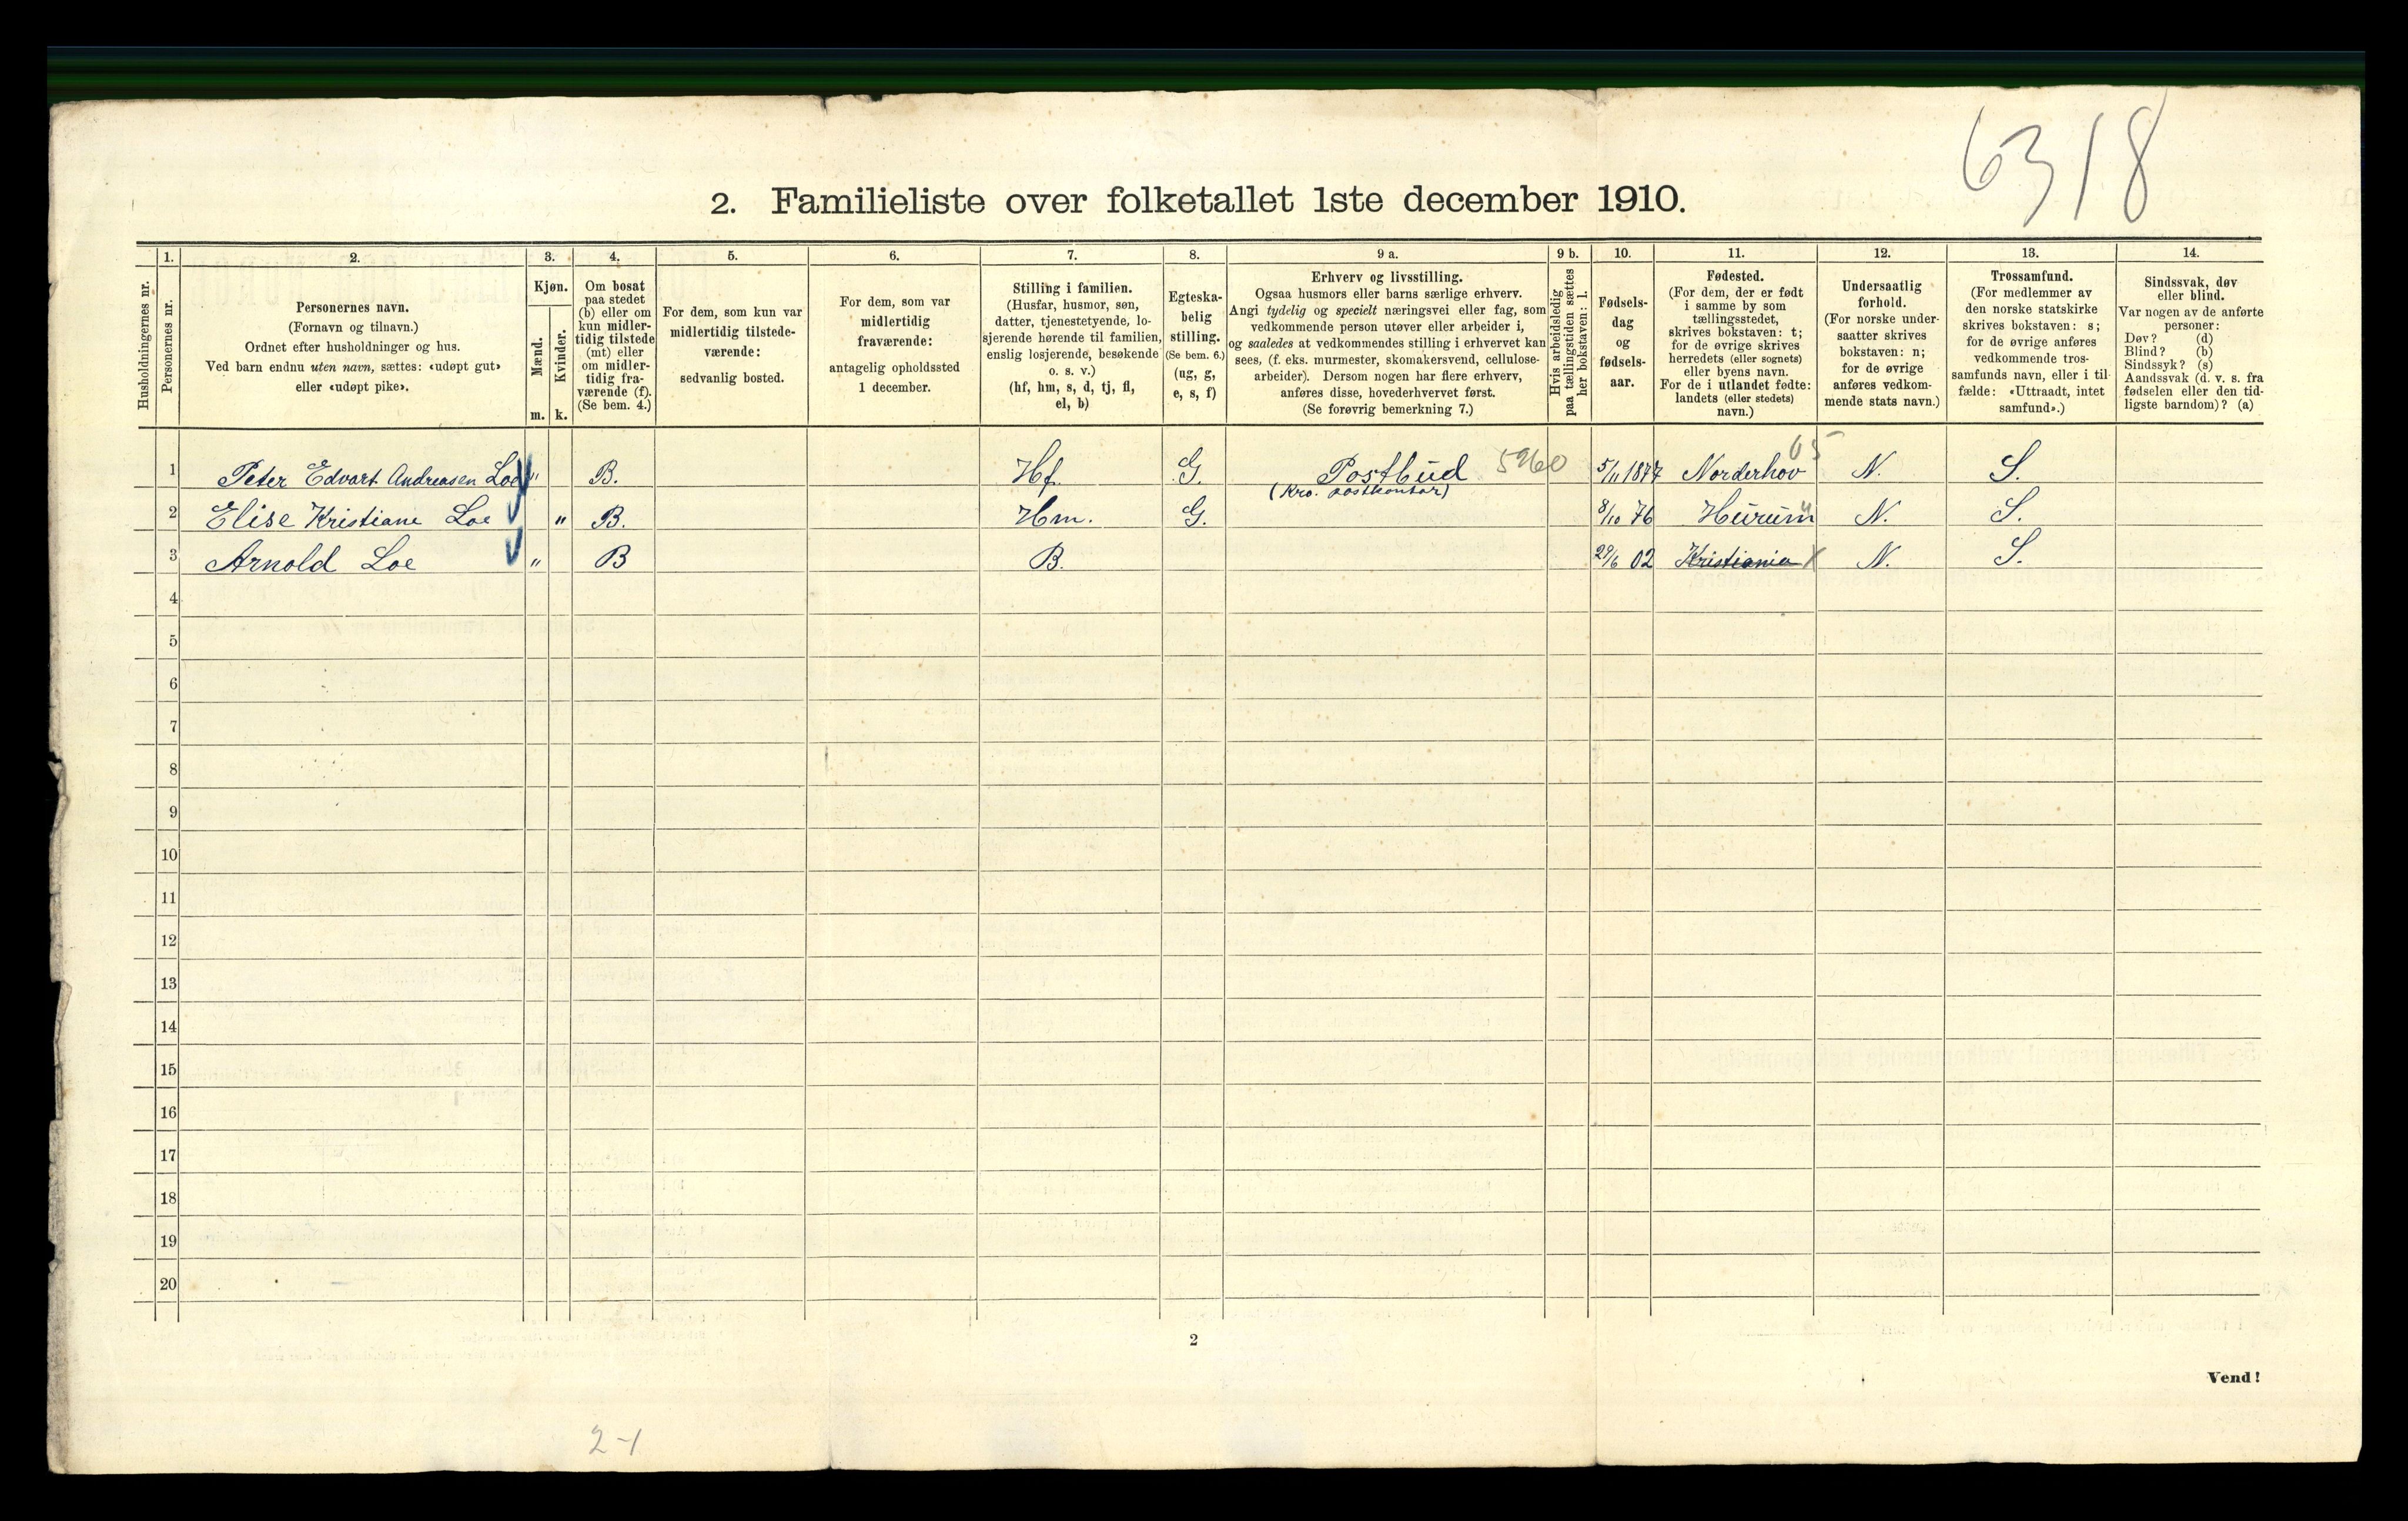 6318
2. Familieliste over folketallet 1ste december 1910.
Husholdningernes nr.
1.
Personernes nr.
2.
Personernes navn.
(Fornavn og tilnavn.)
Ordnet efter husholdninger og hus.
Ved barn endnu uten navn, sættes: «udøpt gut»
eller «udøpt pike».
3.
Kjøn.
Mænd.
Kvinder.
m. k.
4.
Om bosat
paa stedet
(b) eller om
kun midler-
tidig tilstede
(mt) eller
om midler-
tidig fra-
værende (f).
(Se bem. 4.)
5.
For dem, som kun var
midlertidig tilstede-
værende:
sedvanlig bosted.
6.
For dem, som var
midlertidig
fraværende:
antagelig opholdssted
1 december.
7.
Stilling i familien.
(Husfar, husmor, søn,
datter, tjenestetyende, lo-
sjerende hørende til familien,
enslig losjerende, besøkende
o. s. v.)
(hf, hm, s, d, tj, fl,
el, b)
8.
Egteska-
belig
stilling.
(Se bem. 6.)
(ug, g,
e, s, f)
9 a.
Erhverv og livsstilling.
Ogsaa husmors eller barns særlige erhverv.
Angi tydelig og specielt næringsvei eller fag, som
vedkommende person utøver eller arbeider i,
og saaledes at vedkommendes stilling i erhvervet kan
sees, (f. eks. murmester, skomakersvend, cellulose-
arbeider). Dersom nogen har flere erhverv,
anføres disse, hovederhvervet først.
(Se forøvrig bemerkning 7.)
9 b.
Hvis arbeidsledig
paa tællingstiden sættes
her bokstaven: l.
10.
Fødsels-
dag
og
fødsels-
aar.
11.
Fødested.
(For dem, der er født
i samme by som
tællingsstedet,
skrives bokstaven: t;
for de øvrige skrives
herredets (eller sognets)
eller byens navn.
For de i utlandet fødte:
landets (eller stedets)
navn.)
12.
Undersaatlig
forhold.
(For norske under-
saatter skrives
bokstaven: n;
for de øvrige
anføres vedkom-
mende stats navn.)
13.
Trossamfund.
(For medlemmer av
den norske statskirke
skrives bokstaven: s;
for de øvrige anføres
vedkommende tros-
samfunds navn, eller i til-
fælde: «Uttraadt, intet
samfund».)
14.
Sindssvak, døv
eller blind.
Var nogen av de anførte
personer:
Døv? (d)
Blind? (b)
Sindssyk? (s)
Aandssvak (d. v. s. fra
fødselen eller den tid-
ligste barndom)? (a)
1 Peter Edvart Andreasen Loe " B. Hf. G. Postbud 5960 5/11 1877 Norderhov 05 N. S.
(Kra. postkontor)
2 Elise Kristiane Loe " B. Hm. G. 8/10 76 Hurum N. S.
3 Arnold Loe " B B. 29/6 02 Kristiania N. S.
4
5
6
7
8
9
10
11
12
13
14
15
16
17
18
19
20
2
Vend!
2-1